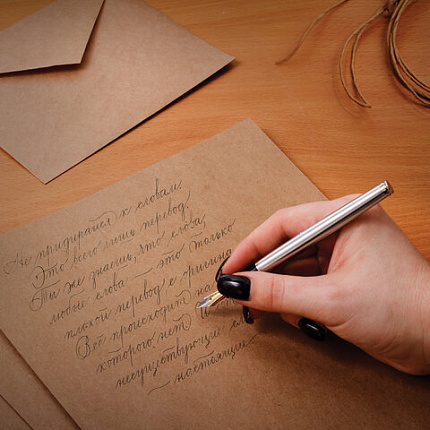 Не придирайся к словам,
Это всего лишь перевод.
Ты же знаешь, что слова,
любые слова — это только
плохой перевод с оригина
Всё происходит на
которого нет
несуществующи
настоящи